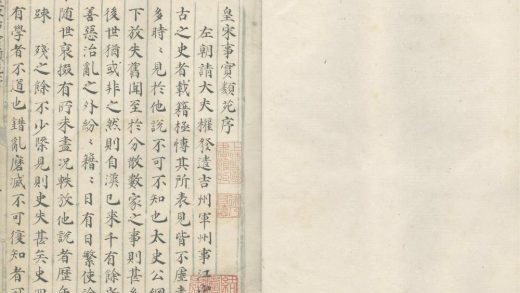 皇宋事實類苑序
左朝請大夫權發遣吉州軍州事江
古之史者載籍極博其所表見皆不虛書
多時〻見於他說不可不知也太史公網
下放失舊聞至於分散數家之事則甚多
後世猶或非之然則自漢已來千有餘歲
善惡治亂之外紛〻籍〻日有日繁使論
隨世裒掇有所未盡况軼放他說者歷年
踈殘之餘不少槩見則史失甚矣史
有學者不道也錯亂磨滅不可復知者可